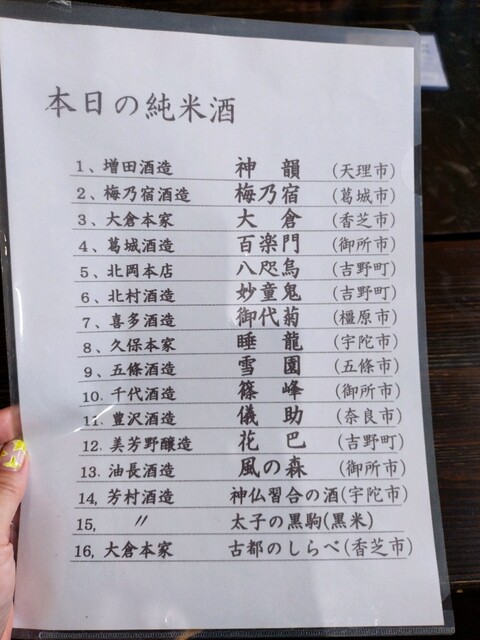 本日の純米酒
1、増田酒造 神韻 (天理市)
2、梅乃宿酒造 梅乃宿 (葛城市)
3、大倉本家 大倉 (香芝市)
4、葛城酒造 百楽門 (御所市)
5、北岡本店 八咫烏 (吉野町)
6、北村酒造 妙童鬼 (吉野町)
7、喜多酒造 御代菊 (橿原市)
8、久保本家 睡龍 (宇陀市)
9、五條酒造 雪園 (五條市)
10. 千代酒造 篠峰 (御所市)
11. 豊沢酒造 儀助 (奈良市)
12. 美芳野醸造 花巴 (吉野町)
13. 油長酒造 風の森 (御所市)
14, 芳村酒造 神仏習合の酒(宇陀市)
15, 〃 太子の黒駒(黒米)
16, 大倉本家 古都のしらべ(香芝市)